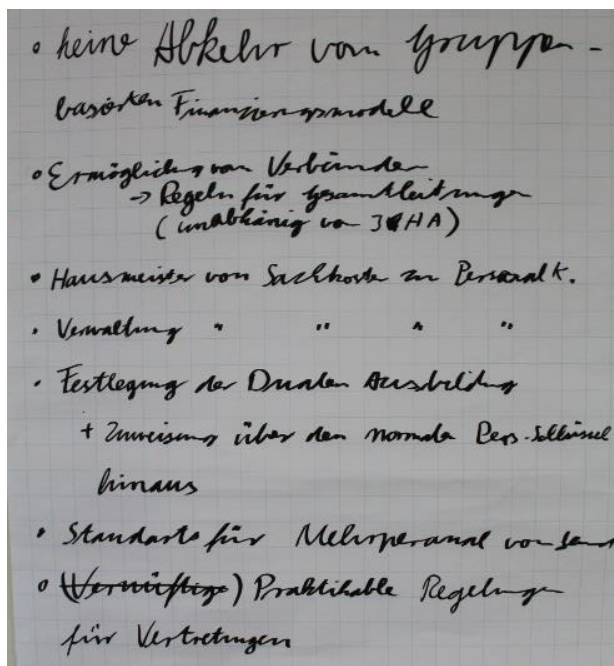 ◦ keine Abkehr vom Gruppen-
basierten Finanzierungsmodell
◦ Ermöglichung von Verbünden
-> Regeln für Gesamtleitungen
(unabhänig von HA)
• Hausmeister von Sachkosten zu Personalk.
• Verwaltung " " " "
• Festlegung der Dualen Ausbildung
+ Zuweisung über den normalen Pers.-Schlüssel
hinaus
• Standarts für Mehrpersonal von
◦ (Vernüftige) Praktikable Regelungen
für Vertretungen